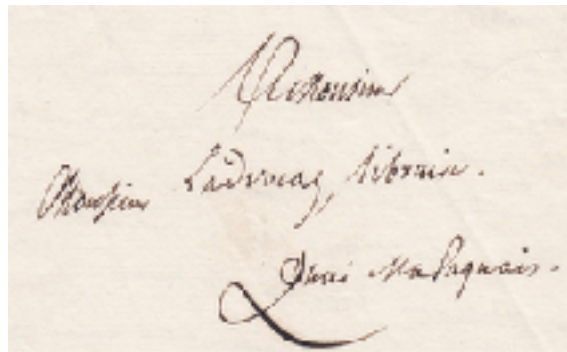 A Monsieur
Monsieur Ladvocat, libraire.
Quai Malaquais.